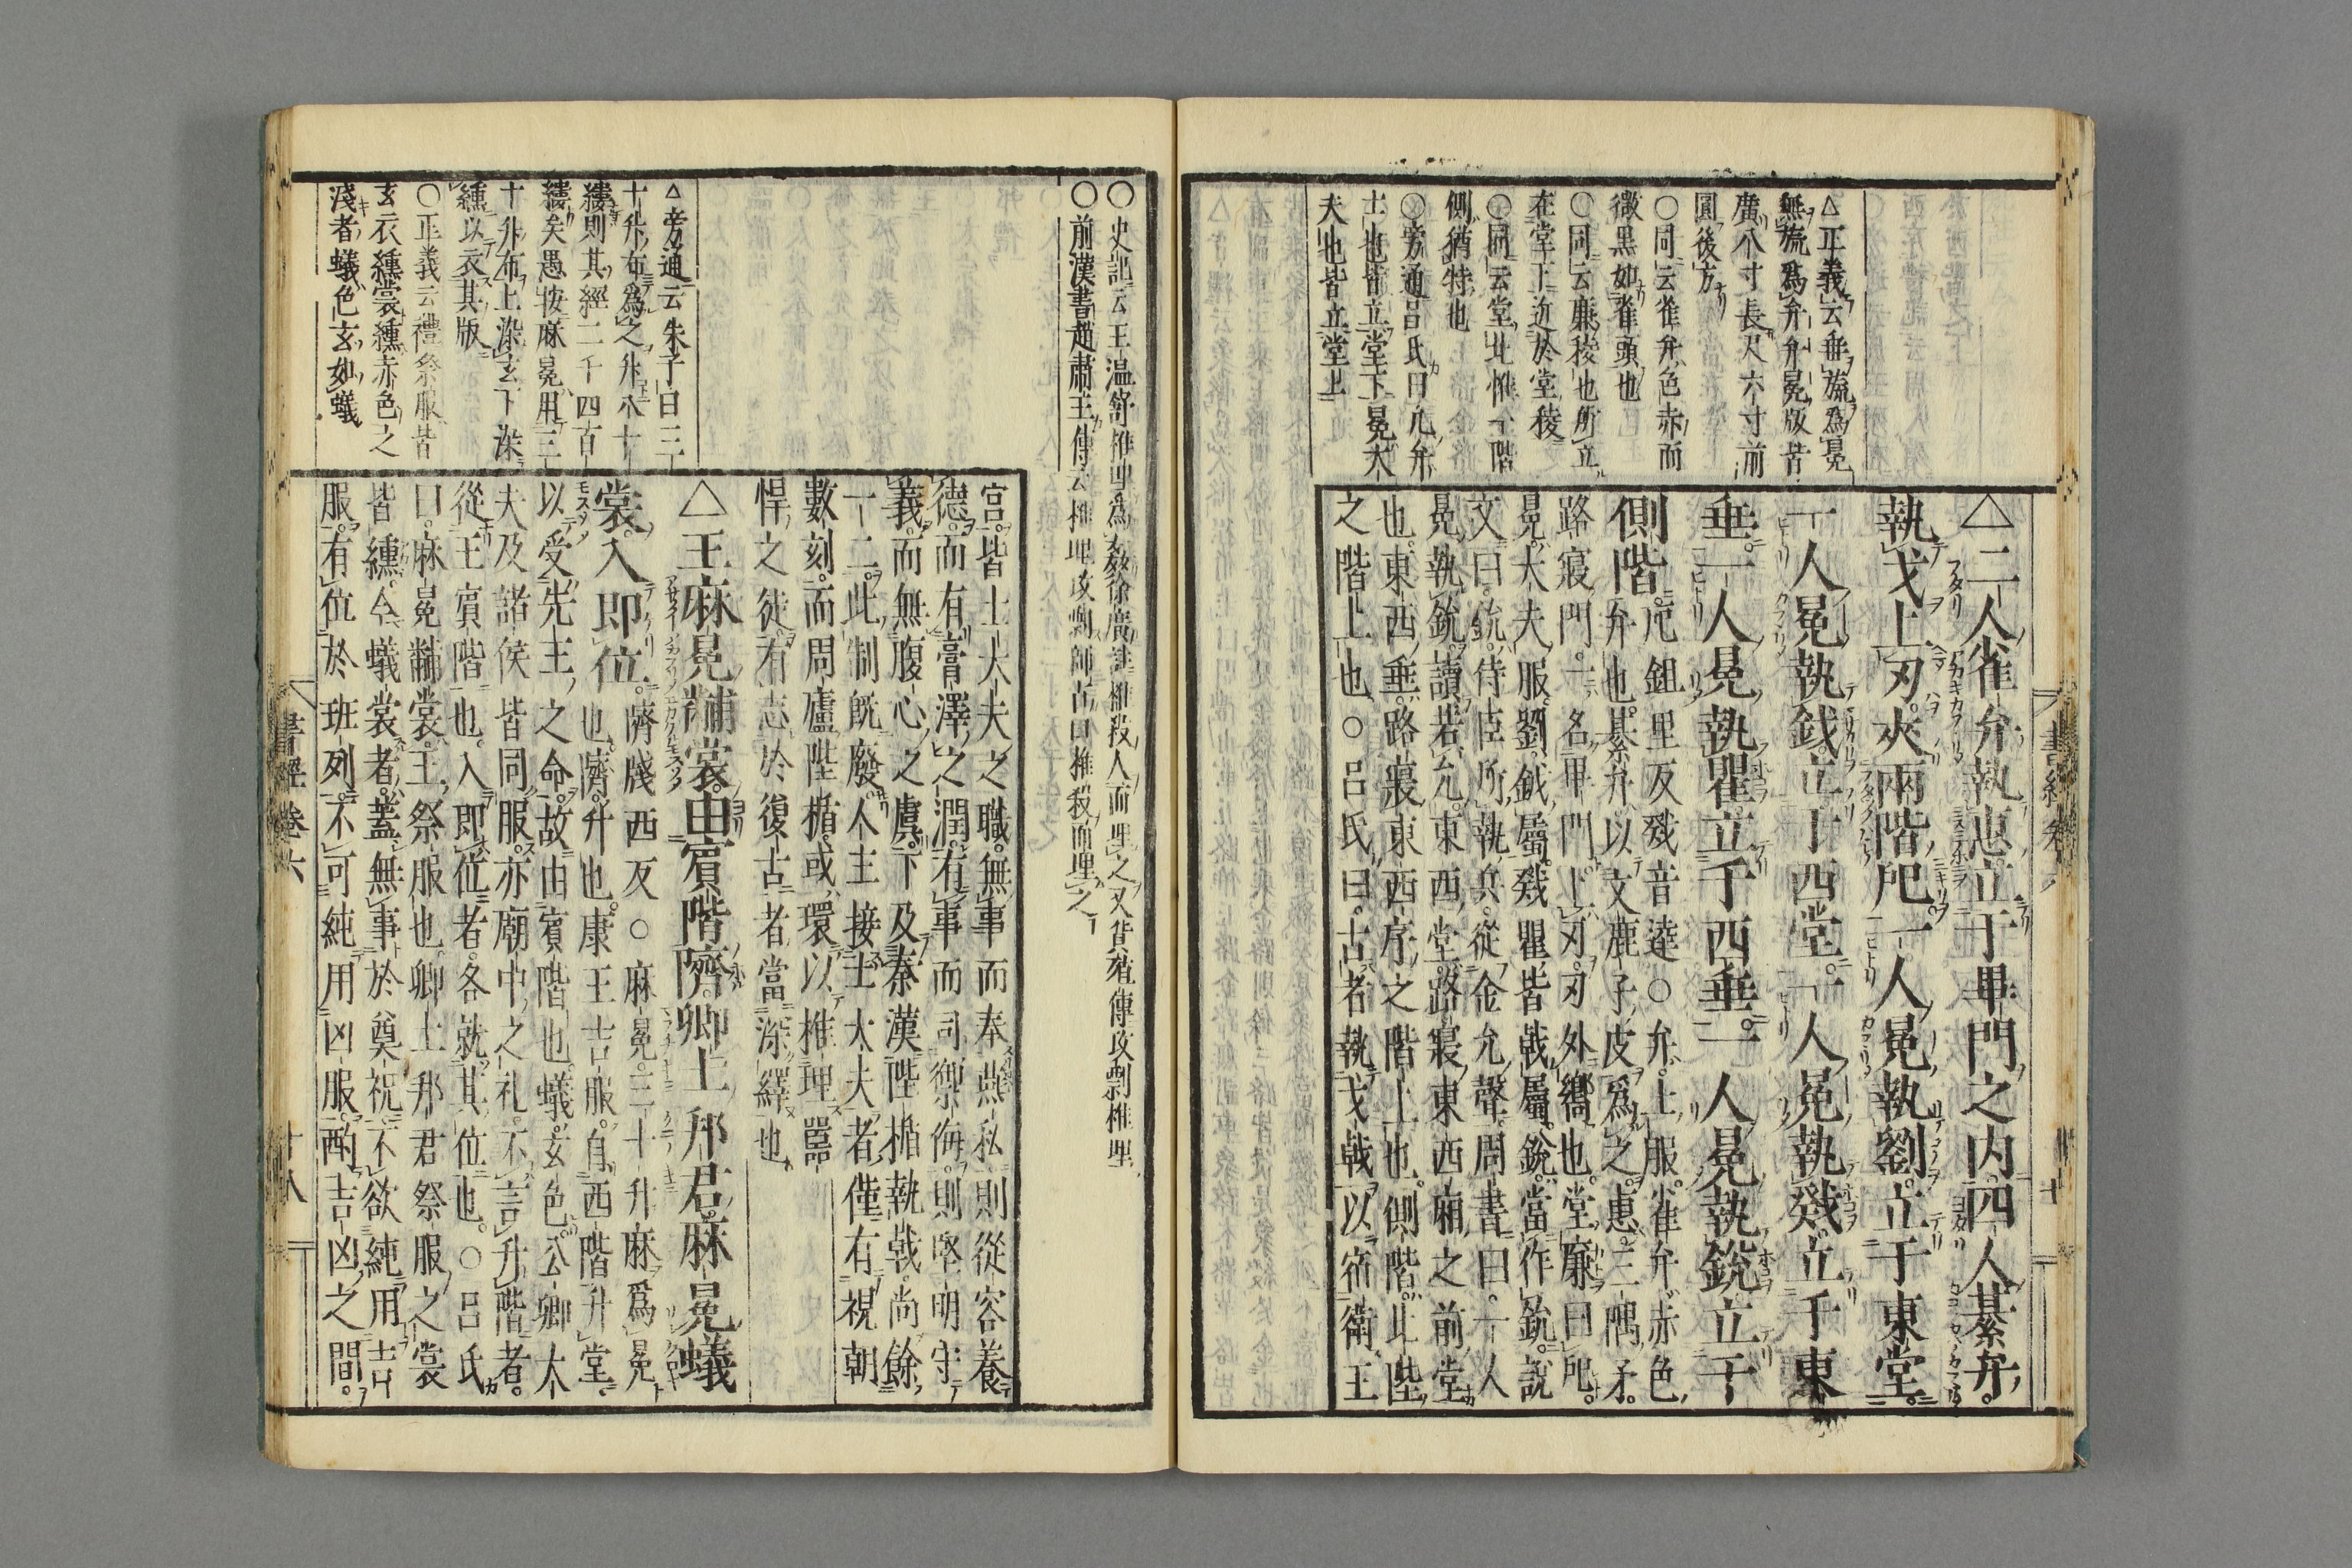 △正義云垂旒爲冕
無旒爲弁弁冕版皆
廣八寸長尺六寸前
圓後方
○同云雀弁色赤而
微黒如雀頭也
○同云廉稜也所立
在堂下近於堂稜
○同云堂北惟一階
側猶特也
○旁通呂氏曰凡弁
士也皆立堂下冕大
夫也皆立堂上
△二人雀弁執惠立于畢門之内四人綦弁
執戈上刃夾兩階戺一人冕執劉立于東堂
一人冕執鉞立于西堂一人冕執戣立于東
垂一人冕執瞿立于西垂一人冕執銳立于
側階戺鉏里反戣音逵○弁士服雀弁赤色
弁也綦弁以文鹿子皮爲之惠三隅矛
路寢門一名畢門上刃刃外嚮也堂廉曰戺
冕大夫服劉鉞屬戣瞿皆戟屬銳當作鈗說
文曰鈗侍臣所執兵從金允聲周書曰一人
冕執鈗讀若允東西堂路寢東西廂之前堂
也東西垂路寢東西序之階上也側階北陛
之階上也○呂氏曰古者執戈戟以宿衛王
書經卷六
○史記云王温舒椎埋爲姦徐廣註椎殺人而埋之又貨殖傳攻剽椎埋
○前漢書趙肅王傳云椎埋攻剽師古曰椎殺而埋之
△旁通云朱子曰三
十升布爲之升八十
縷則其經二千四百
縷矣愚按麻冕用三
十升布上染玄下染
纁以衣其版
○正義云禮祭服皆
玄衣纁裳纁赤色之
淺者蟻色玄如蟻
宮皆士大夫之職無事而奉燕私則從容養
德而有膏澤之潤有事而司禦侮則堅明守
義而無腹心之虞下及秦漢陛楯執戟尚餘
一二此制既廢人主接士大夫者僅有視朝
數刻而周廬陛楯或環以椎埋嚚
悍之徒有志於復古者當深繹也
△王麻冕黼裳由賓階隮卿士邦君麻冕蟻
裳入即位隮牋西反○麻冕三十升麻爲冕
也隮升也康王吉服自西階升堂
以受先王之命故由賓階也蟻玄色公卿大
夫及諸侯皆同服亦廟中之礼不言升階者
從王賓階也入即位者各就其位也○呂氏
曰麻冕黼裳王祭服也卿士邦君祭服之裳
皆纁今蟻裳者蓋無事於奠祝不欲純用吉
服有位於班列不可純用凶服酌吉凶之間
書經卷六
十八